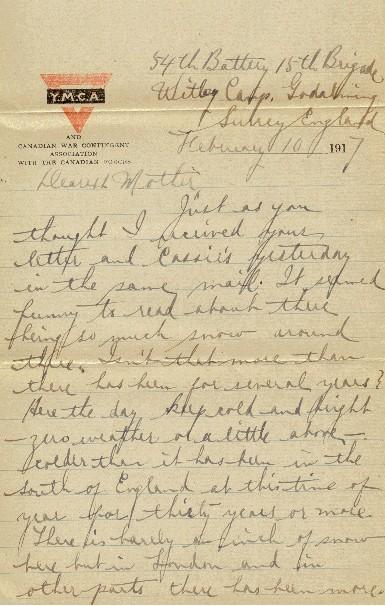 54th Battery 15th Brigade
Witley Camp. Godalming
Surrey England
Y.M.C.A.
AND
CANADIAN WAR CONTINGENT
ASSOCIATION
WITH THE CANADIAN FORCES
February 10 1917
Dearest Mother
Just as you
thought I received yours
letter and Cassie's yesterday
in the same mail. It seemed
funny to read about there
being so much snow around
there. Isn't that more than
there has been for several years?
Here the day keep cold and bright
- zero weather or a little above -
colder than it has been in the
south of England at this time of
year for thirty years or more.
There is hardly an inch of snow
here but in London and in
other parts there has been more.